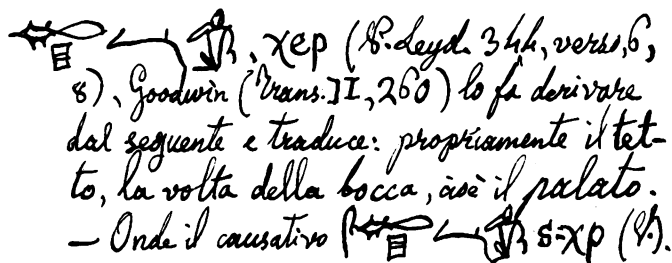 , χep (P. Leyd. 344, verso, 6,
8), Goodwin (Trans.] I, 260) lo fa derivare
dal seguente e traduce: propriamente il tet-
to, la volta della bocca, cioè il palato.
— Onde il causativo s-χp (P.).